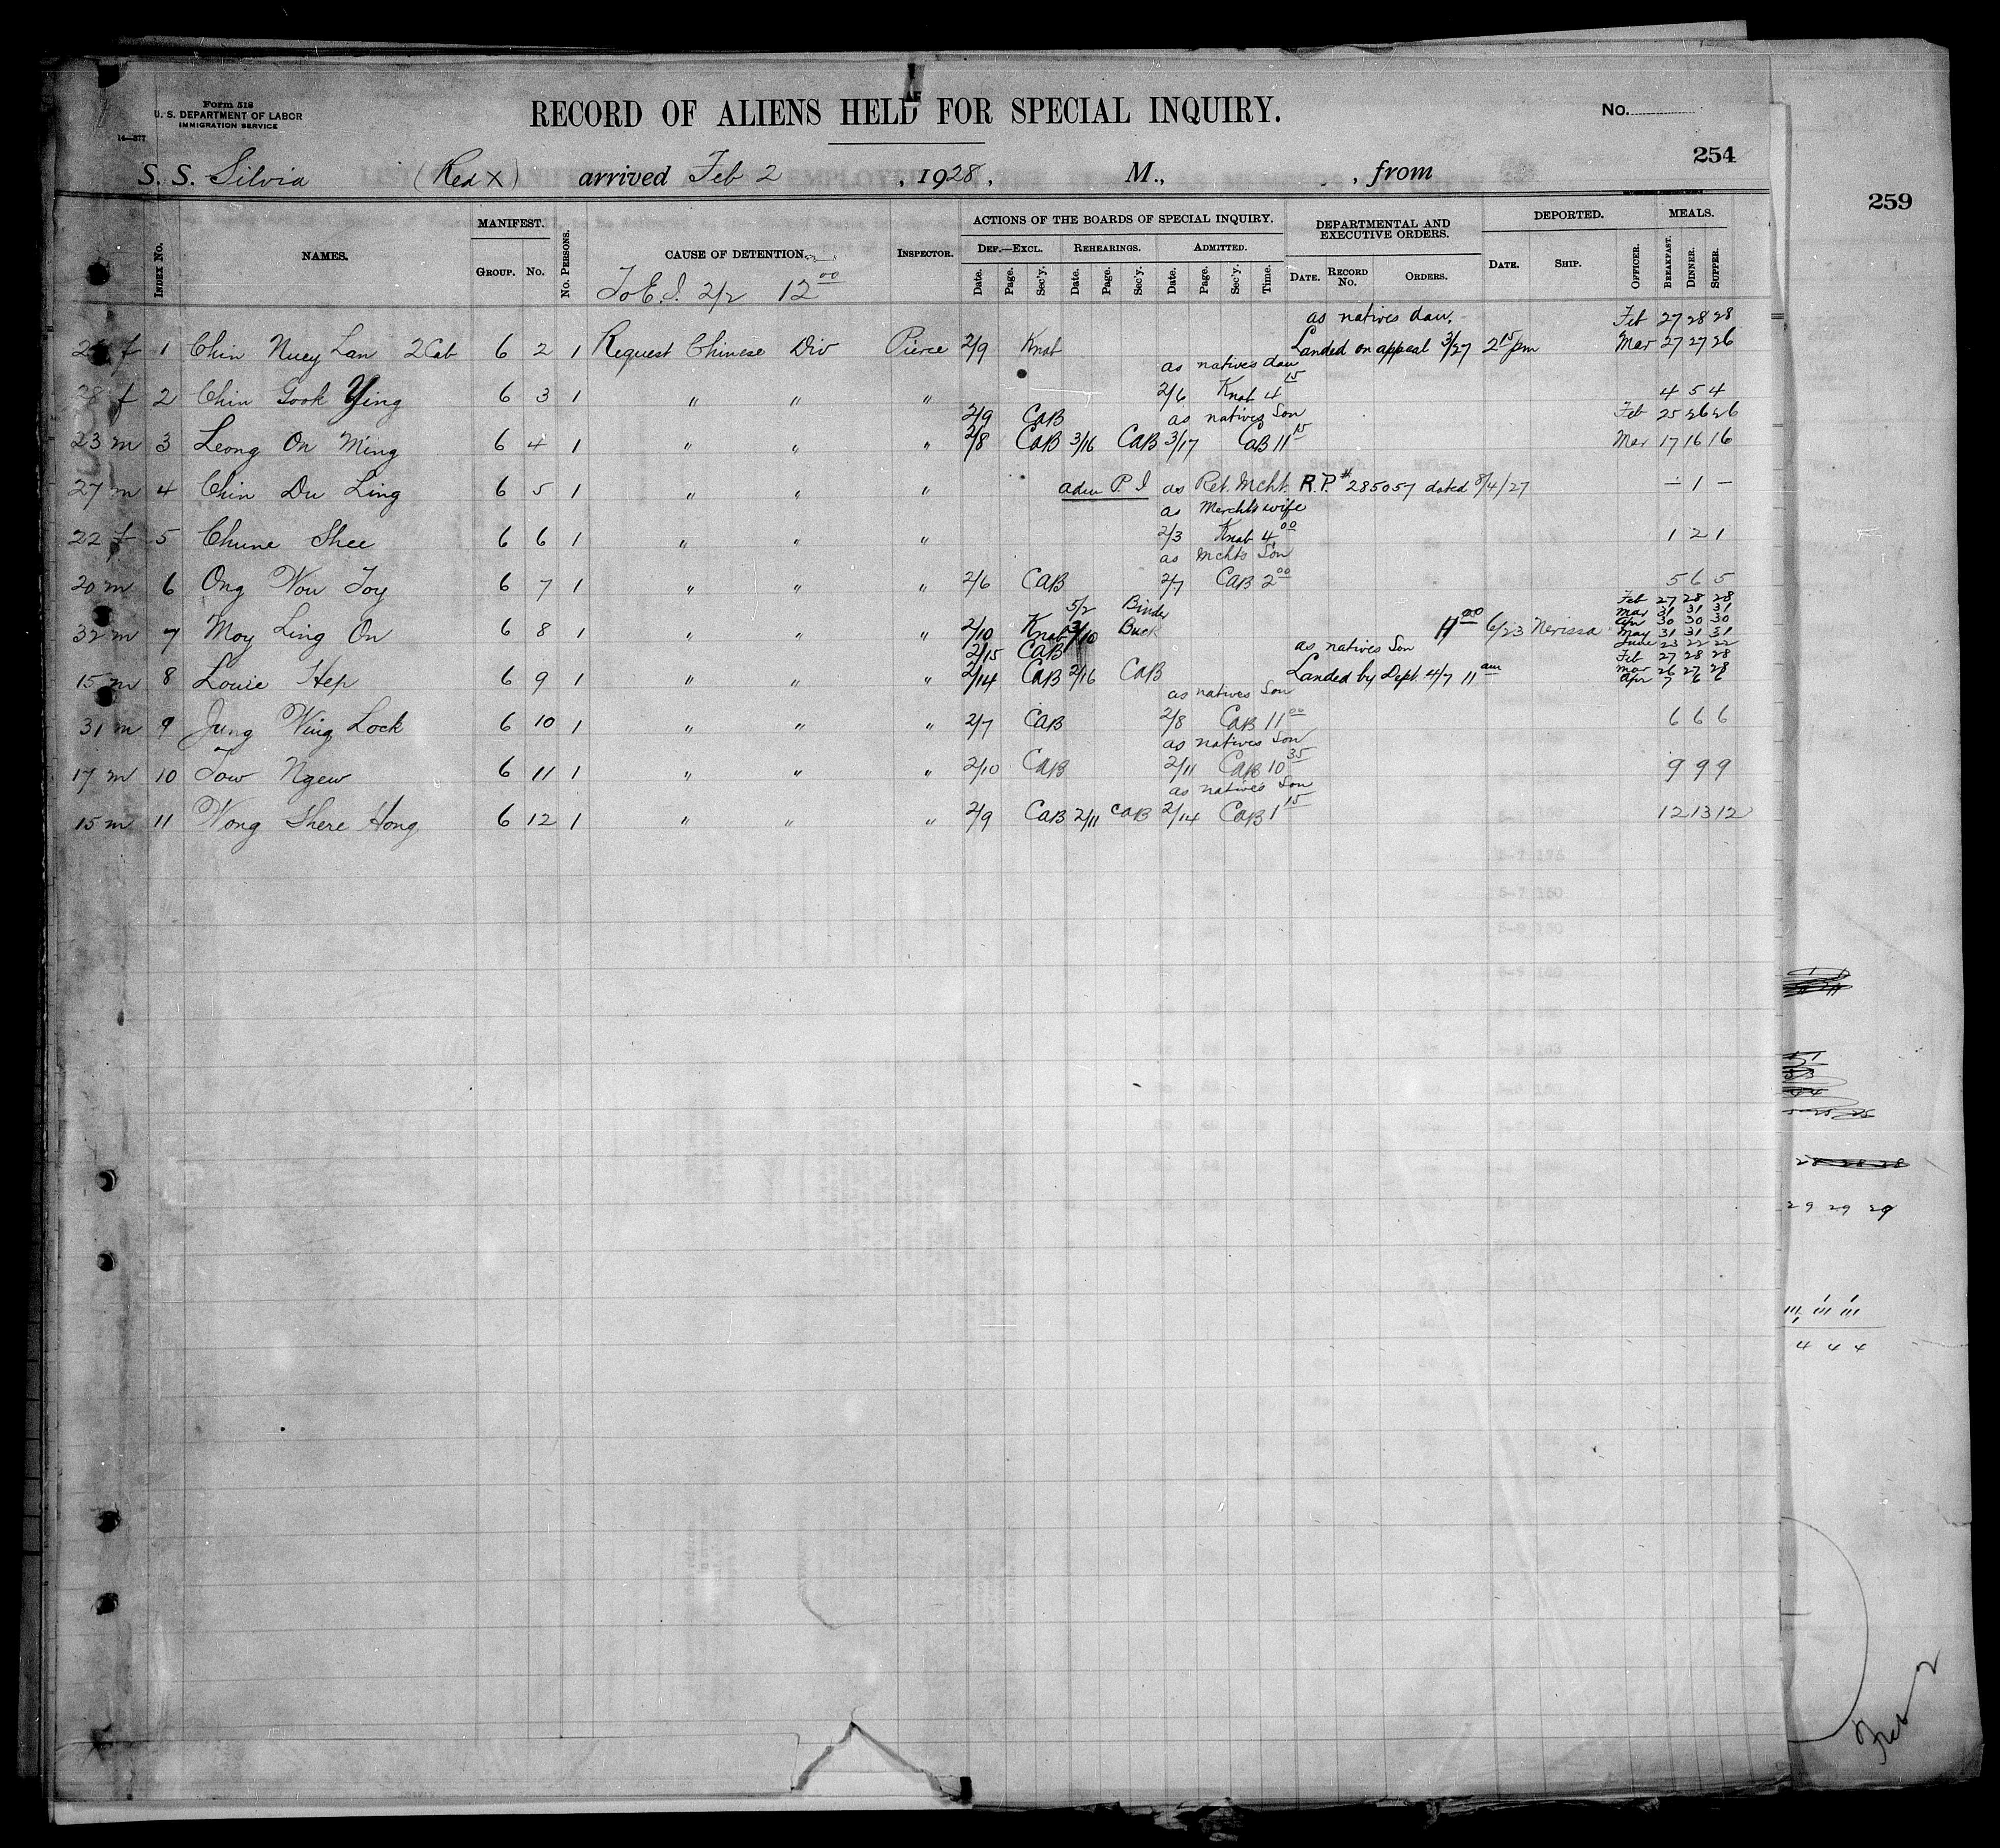 Form 518
U. S. DEPARTMENT OF LABOR
IMMIGRATION SERVICE
14—377
RECORD OF ALIENS HELD FOR SPECIAL INQUIRY.
No.
254
259
S. S. Silvia (Red X) arrived Feb 2, 1928, M., , from
INDEX No. NAMES. MANIFEST. GROUP. No. No. PERSONS. CAUSE OF DETENTION. INSPECTOR. ACTIONS OF THE BOARDS OF SPECIAL INQUIRY. DEPARTMENTAL AND EXECUTIVE ORDERS. DEPORTED. MEALS.
DEF.—EXCL. REHEARINGS. ADMITTED.
Date. Page. Sec'y. Date. Page. Sec'y. Date. Page. Sec'y. Time. DATE. RECORD No. ORDERS. DATE. SHIP. OFFICER. BREAKFAST. DINNER. SUPPER.
To E. I. 2/2 12 00
as natives dau. Feb 27 28 28
f 1 Chin Nuey Lan 2 Cab 6 2 1 Request Chinese Div Pierce 2/9 Knab Landed on appeal 3/27 2 15 pm Mar 27 27 26
as natives dau
28 f 2 Chin Gook Ying 6 3 1 " " " 2/6 Knab 4 15 4 5 4
2/9 CAB as natives Son Feb 25 26 26
23 m 3 Leong On Ming 6 4 1 " " " 2/8 CAB 3/16 CAB 3/17 CAB 11 15 Mar 17 16 16
27 m 4 Chin Du Ling 6 5 1 " " " adm P. I as Ret. Mcht. R.P. # 285057 dated 8/4/27 — 1 —
as Merchts wife
22 f 5 Chune Shee 6 6 1 " " " 2/3 Knab 4 00 1 2 1
as Mchts Son
20 m 6 Ong Wou Toy 6 7 1 " " " 2/6 CAB 2/7 CAB 2 00 5 6 5
5/2 Binder Feb 27 28 28
Mar 31 31 31
Apr 30 30 30
32 m 7 Moy Ling On 6 8 1 " " " 2/10 Knab 3/10 Buck 11 00 6/23 Nerissa May 31 31 31
June 23 22 22
2/15 CAB as natives Son Feb 27 28 28
Mar 26 27 28
15 m 8 Louie Hep 6 9 1 " " " 2/14 CAB 2/16 CAB Landed by Dept. 4/7 11 am Apr 7 6 6
as natives Son
31 m 9 Jung Wing Lock 6 10 1 " " " 2/7 CAB 2/8 CAB 11 00 6 6 6
as natives Son
17 m 10 Tow Ngew 6 11 1 " " " 2/10 CAB 2/11 CAB 10 35 9 9 9
as natives Son
15 m 11 Wong Shere Hong 6 12 1 " " " 2/9 CAB 2/11 CAB 2/14 CAB 1 15 12 13 12
28 28 28
29 29 29
4 4 4
Feb 2